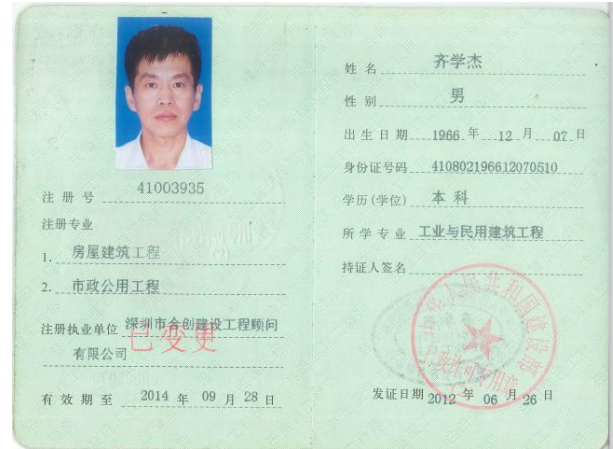 41003935
注册号
注册专业
1. 房屋建筑工程
2. 市政公用工程
注册执业单位 深圳市合创建设工程顾问
有限公司
已变更
有效期至 2014 年 09 月 28 日
姓名 齐学杰
性别 男
出生日期 1966 年 12 月 07 日
身份证号码 410802196612070510
学历(学位) 本科
所学专业 工业与民用建筑工程
持证人签名
发证日期 2012 年 06 月 26 日